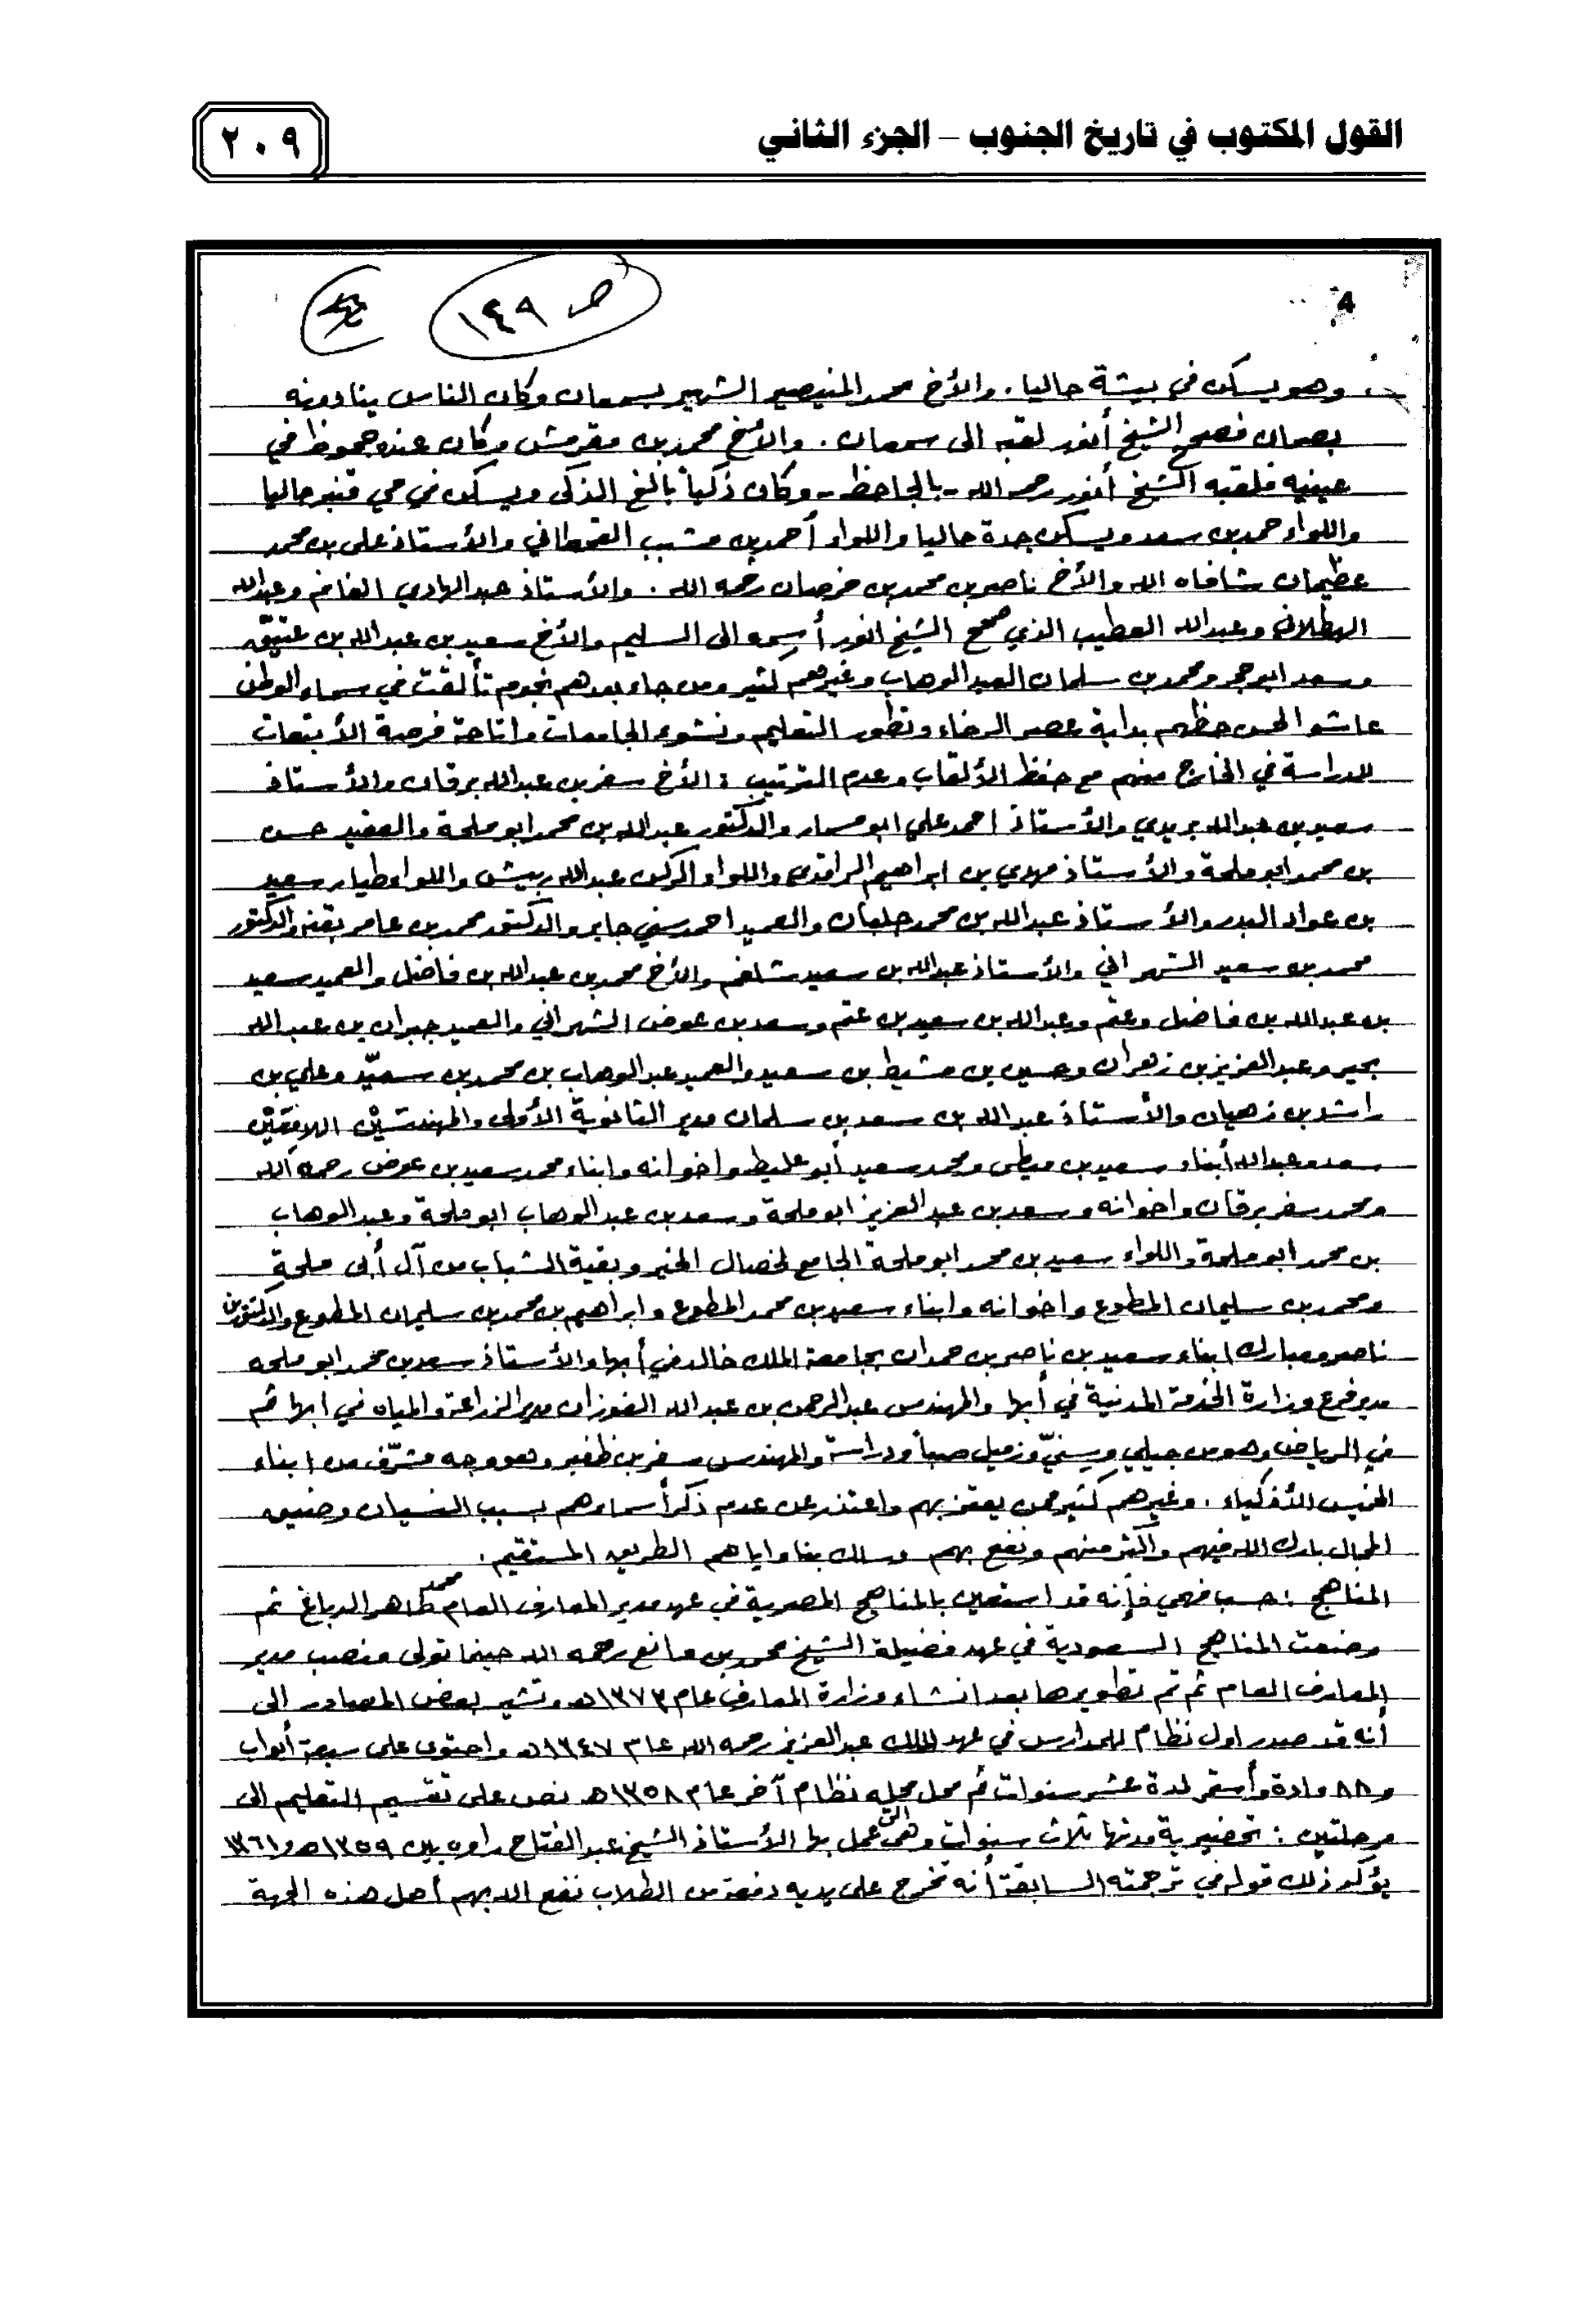 القول المكتوب في تاريخ الجنوب – الجزء الثاني
٢٠٩
4
ص ١٤٩
وهو يسكن في بيشة حاليا. والأخ محمد المنيصير الشهير بسمعان وكان الناس ينادونه
بصمان فصحح الشيخ أنور لقبه الى سمعان. والأخ محمد بن مقرمش وكان عنده جحوظ في
عينيه فلقبه الشيخ أنور رحمه الله - بالجاحظ - وكان ذكياً بالغ الذكى ويسكن في حي قنبر حاليا
واللواء حمد بن سعد ويسكن جدة حاليا واللواء أحمد بن مشبب القحطاني والأستاذ علي بن محمد
عظيمان شافاه الله والأخ ناصر بن محمد بن خرصان رحمه الله. والأستاذ عبد الهادي الغانم وعبدالله
الهطلاني وعبدالله العطيب الذي صحح الشيخ انور أسمه الى السليم والأخ سعيد بن عبدالله بن عتيّق
وسعد ابو حجر ومحمد بن سلمان العبد الوهاب وغيرهم كثير ومن جاء بعدهم نجوم تألقت في سماء الوطن
عاشوا لحسن حظهم بداية عصر الرخاء وتطور التعليم ونشوء الجامعات واتاحة فرصة الأبتعاث
للدراسة في الخارج منهم مع حفظ الألقاب وعدم الترتيب : الأخ سفر بن عبدالله برقان والأستاذ
سعيد بن عبدالله بريدي والأستاذ احمد علي ابو مسمار والدكتور عبدالله بن محمد ابو ملحة والعقيد حسن
بن محمد ابو ملحة والأستاذ مهدي بن ابراهيم الراقدي واللواء الركن عبدالله ربيش واللواء طيار سعيد
بن عواد البدر والأستاذ عبدالله بن محمد جلبان والعميد احمد سني جابر والدكتور محمد بن عامر بقنه والدكتور
محمد بن سعيد الشهراني والأستاذ عبدالله بن سعيد شلغم والأخ محمد بن عبدالله بن فاضل والعميد سعيد
بن عبدالله بن فاضل وعتم وعبدالله بن سعيد بن عتم وسعد بن عوض الشهراني والعميد جبران بن عبدالله
بحير وعبد العزيز بن زهران وحسين بن مشيط بن سعيد والعميد عبد الوهاب بن محمد بن سعيّد وعلي بن
راشد بن زهيان والأستاذ عبدالله بن سعد بن سلمان مدير الثانوية الأولى والمهندسيْن اللامعَيْن
سعد وعبدالله أبناء سعيد بن ميطي ومحمد سعيد أبو عليط واخوانه وابناء محمد سعيد بن عوض رحمه الله
ومحمد سفر برقان واخوانه وسعد بن عبد العزيز ابو ملحة وسعد بن عبد الوهاب ابو ملحة وعبد الوهاب
بن محمد ابو ملحة واللواء سعيد بن محمد ابو ملحة الجامع لخصال الخير وبقية الشباب من آل أبي ملحةِ
ومحمد بن سليمان المطوع واخوانه وابناء سعيد بن محمد المطوع وابراهيم بن محمد بن سليمان المطوع والدكتورين
ناصر ومبارك ابناء سعيد بن ناصر بن حمدان بجامعة الملك خالد في أبها والأستاذ سعد بن محمد ابو ملحه
مدير فرع وزارة الخدمة المدنية في أبها والمهندس عبد الرحمن بن عبد الله الفوزان مدير الزراعة والمياه في ابها ثم
في الرياض وهو من جيلي وسِنيّ وزميل صباً ودراسة والمهندس سفر بن ظفير وهو وجه مشرّف من ابناء
الخميس الأذكياء. وغيرهم كثير ممن يعتز بهم واعتذر عن عدم ذكر أسماءهم بسبب النسيان وضيق
المجال بارك الله فيهم وأكثر منهم ونفع بهم وسلك بنا واياهم الطريق المستقيم.
المناهج : حسب فهمي فإنه قد استعين بالمناهج المصرية في عهد مدير المعارف العام محمد طاهر الدباغ ثم
وضعت المناهج السعودية في عهد فضيلة الشيخ محمد بن مانع رحمه الله حينما تولى منصب مدير
المعارف العام ثم تم تطويرها بعد انشاء وزارة المعارف عام ١٣٧٣هـ وتشير بعض المصادر الى
أنه قد صدر اول نظام للمدارس في عهد الملك عبد العزيز رحمه الله عام ١٣٤٧هـ واحتوى على سبعة أبواب
و ٨٨ مادة وأستمر لمدة عشر سنوات ثم محل محله نظام آخر عام ١٣٥٨هـ نص على تقسيم التعليم الى
مرحلتين : تحضيرية مدتها ثلاث سنوات وهي التي عمل بها الأستاذ الشيخ عبد الفتاح راوه بين ١٣٥٩هـ و ١٣٦١
يؤكد ذلك قوله في ترجمته السابقة أنه تخرج على يديه دفعة من الطلاب نفع الله بهم أهل هذه الجهة